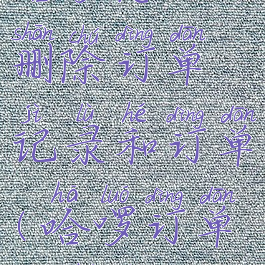 shān chú dìng dān
删除订单
jì lù hé dìng dān
记录和订单
hā luō dìng dān
（哈啰订单